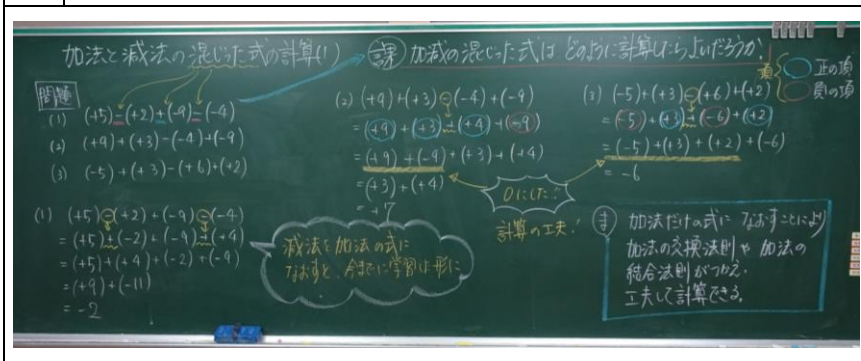 加法と減法の混じった式の計算(1)
課 加減の混じった式は どのように計算したらよいだろうか
項
正の項
負の項
問題
(1) (+5)-(+2)+(-9)-(-4)
(2) (+9)+(+3)-(-4)+(-9)
(3) (-5)+(+3)-(+6)+(+2)
(1) (+5)-(+2)+(-9)-(-4)
=(+5)+(-2)+(-9)+(+4)
=(+5)+(+4)+(-2)+(-9)
=(+9)+(-11)
=-2
減法を加法の式に
なおすと、今までに学習した形に
(2) (+9)+(+3)-(-4)+(-9)
=(+9)+(+3)+(+4)+(-9)
=(+9)+(-9)+(+3)+(+4)
=(+3)+(+4)
=+7
0にした!!
計算の工夫!
(3) (-5)+(+3)-(+6)+(+2)
=(-5)+(+3)+(-6)+(+2)
=(-5)+(+3)+(+2)+(-6)
=-6
ま 加法だけの式に なおすことにより
加法の交換法則や 加法の
結合法則がつかえ、
工夫して計算できる。